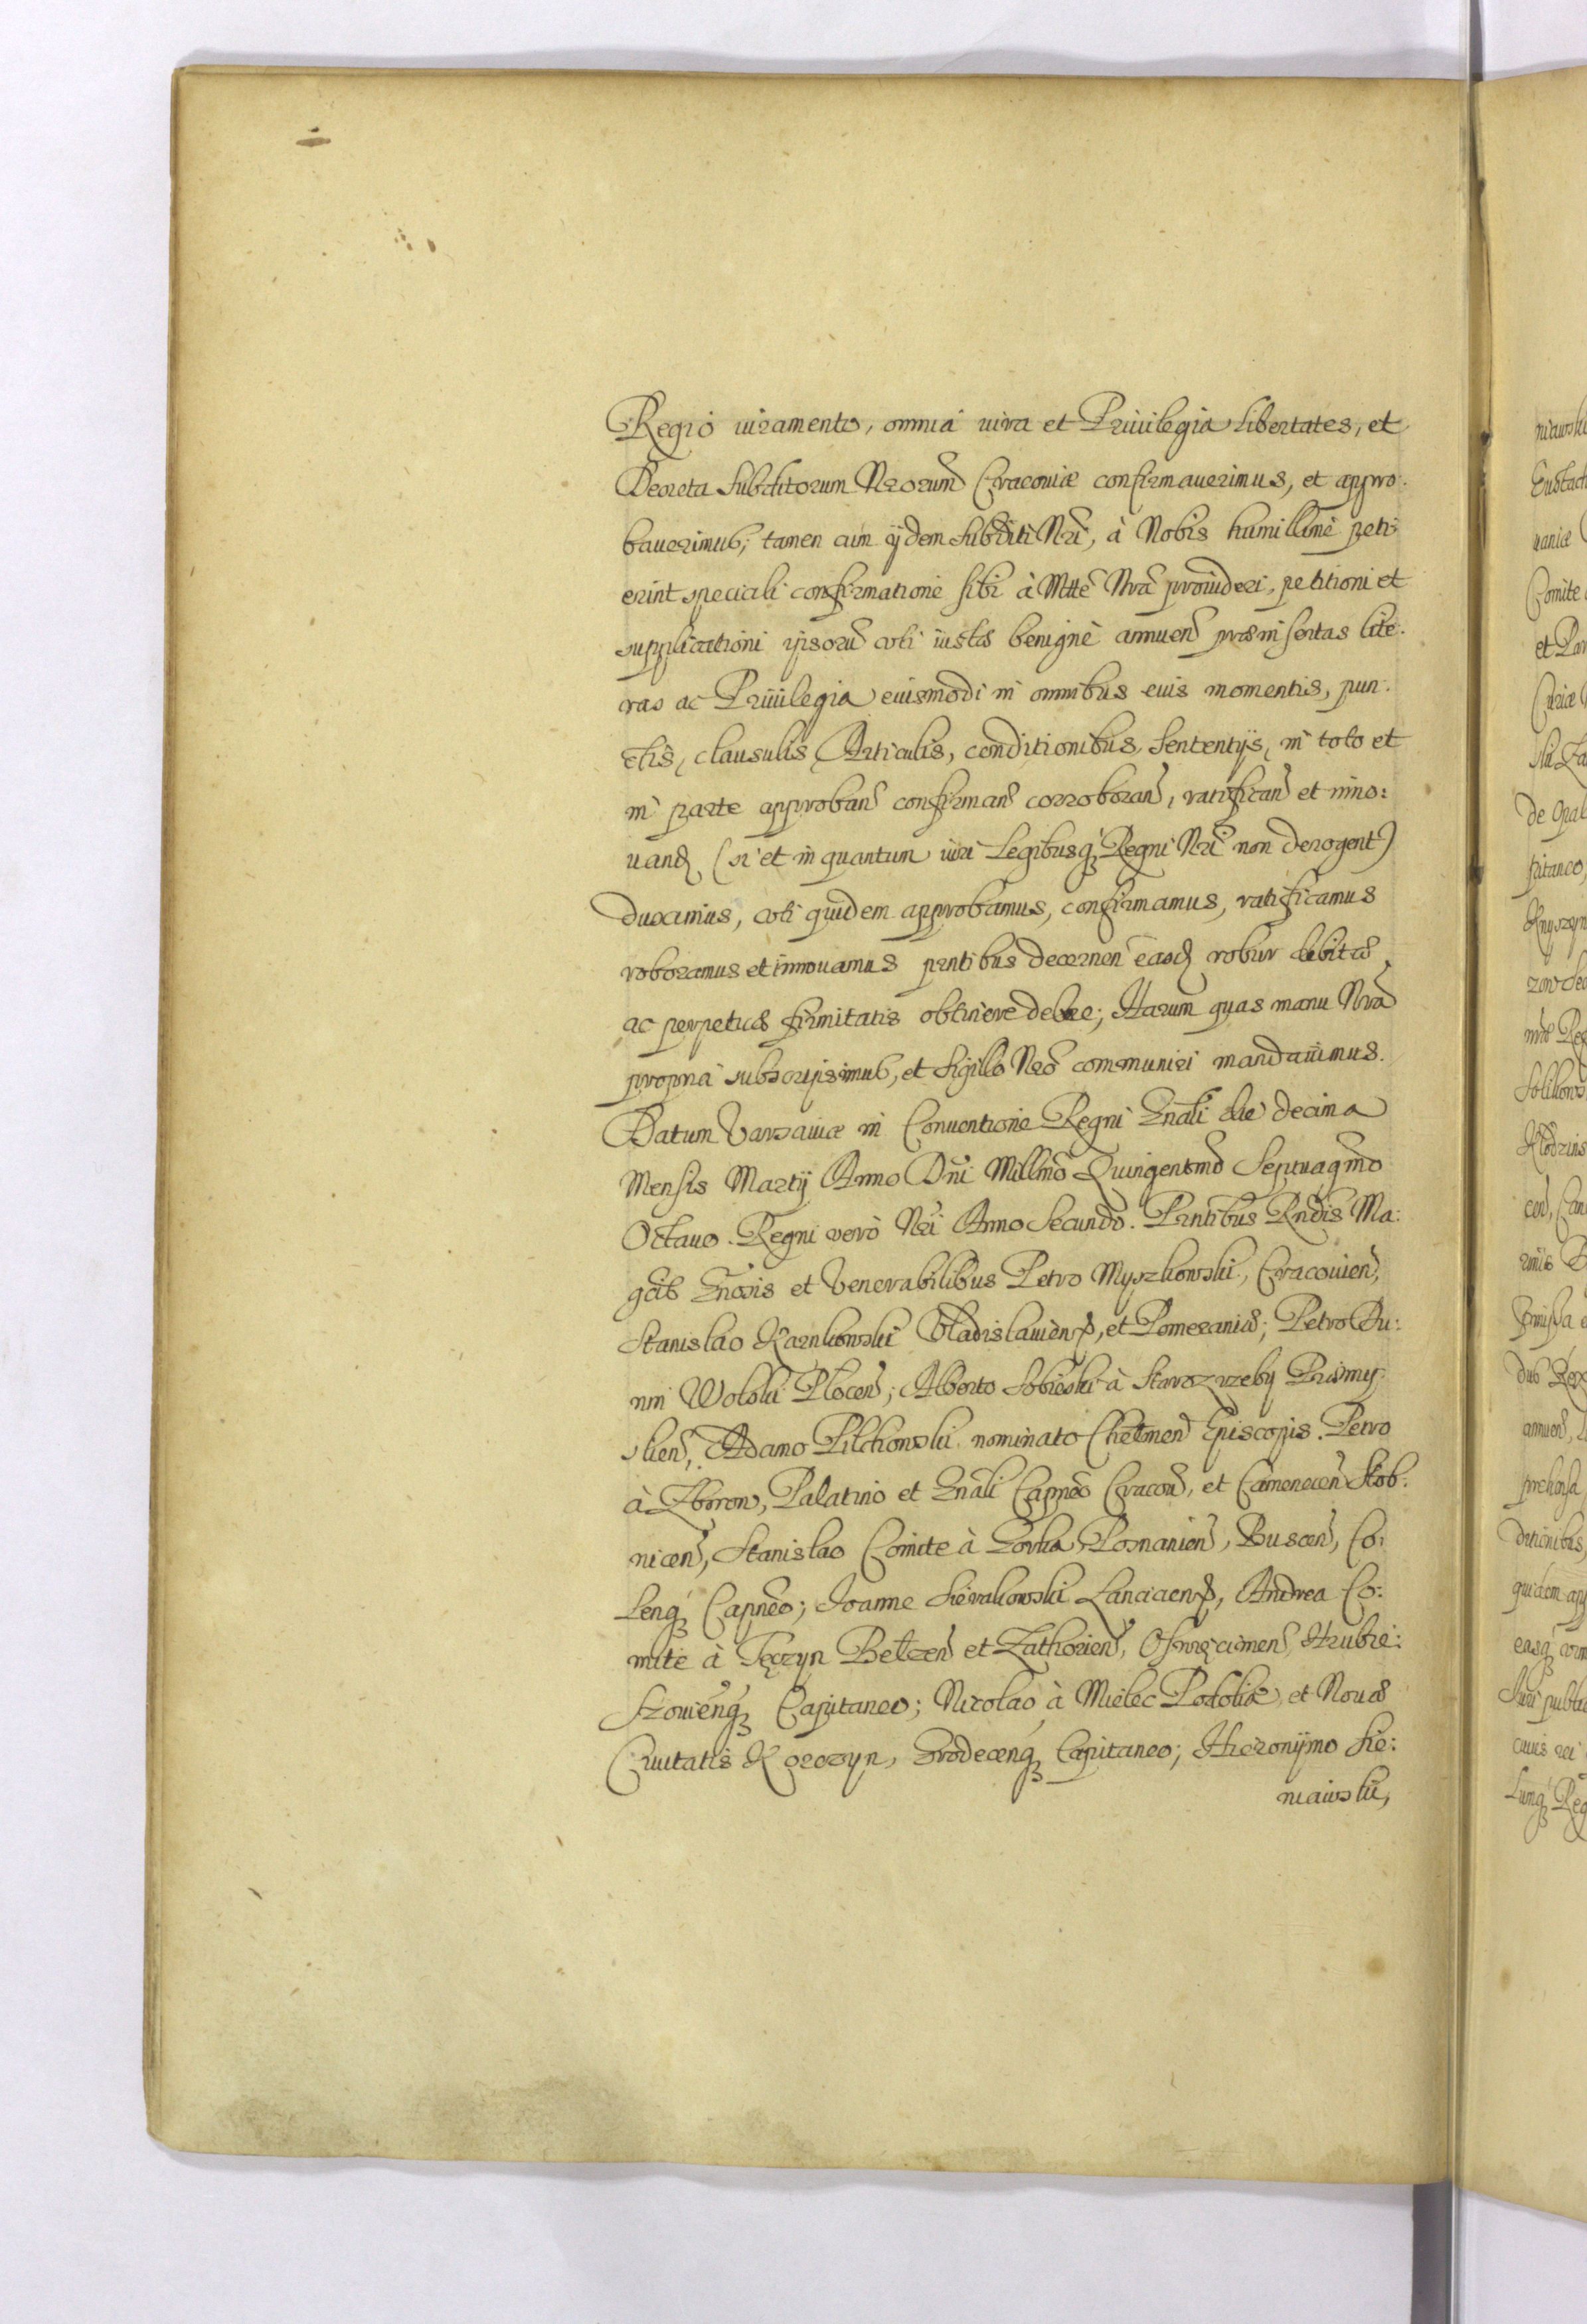 Regio iuramento, omnia iura et Priuilegia libertates, et
Decreta subditorum Nrorum Cracouiæ confirmauerimus, et appro:
bauerimus; tamen cum ijdem subditi Nri, à Nobis humillime peti:
erint speciali confirmatione sibi à Mtte Nra prouideri, petitioni et
supplicationi ipsorum uti iustæ benignè annuen præinsertas lite:
ras ac Priuilegia eiusmodi in omnibus euis momentis, pun:
ctis, clausulis, Articulis, conditionibus, sententijs, in toto et
in parte approban confirman corroboran, ratifican et inno:
uand (si et in quantum iuri Legibusq Regni Nri non derogent)
duximus, uti quidem approbamus, confirmamus, ratificamus
roboramus et innouamus pntibus decernen easd robur debitæ
ac perpetuæ firmitatis obtinere debere; Harum quas manu Nra
propria subscripsimus, et sigillo Nro communiri mandauimus.
Datum Varsauiæ in Conuentione Regni Gnali die decima
Mensis Martij Anno Dni Millmo Quingentmo Septuagmo
Octauo. Regni verò Nri Anno Secundo. Pntibus Rndis Ma:
gcis Gnosis et Venerabilibus Petro Myszkowski, Cracouien,
Stanislao Karnkowski Vladislauien, et Pomeraniæ; Petro Du:
nin Wolski Plocen; Alberto Sobieski à Starozrzeby Prismy:
slien, Adamo Pilchowski nominato Chelmen Episcopis. Petro
à Zborow, Palatino et Gnali Capneo Cracou, et Camenecen Stob:
nicen, Stanislao Comite à Gorka Posnanien, Buscen, Co:
lenq Capneo; Joanne Sierakowski Lanciaen, Andrea Co:
mite à Tęczyn Belzen et Zathorien, Oswięcimen Hrubie:
szouienq Capitaneo; Nicolao à Mielec Podoliæ et Nouæ
Ciuitatis Korczyn, Grodecenq Capitaneo; Hieronijmo Sie:
niawski,